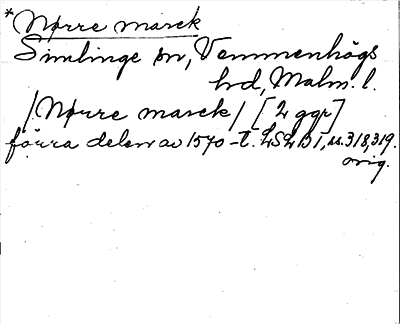 * Nørre marck
Simlinge sn, Vemmenhögs
hd, Malm. l.
/Nørre marck/ [2 ggr]
förra delen av 1570-t. LSLBI, ss. 318, 319.
orig.